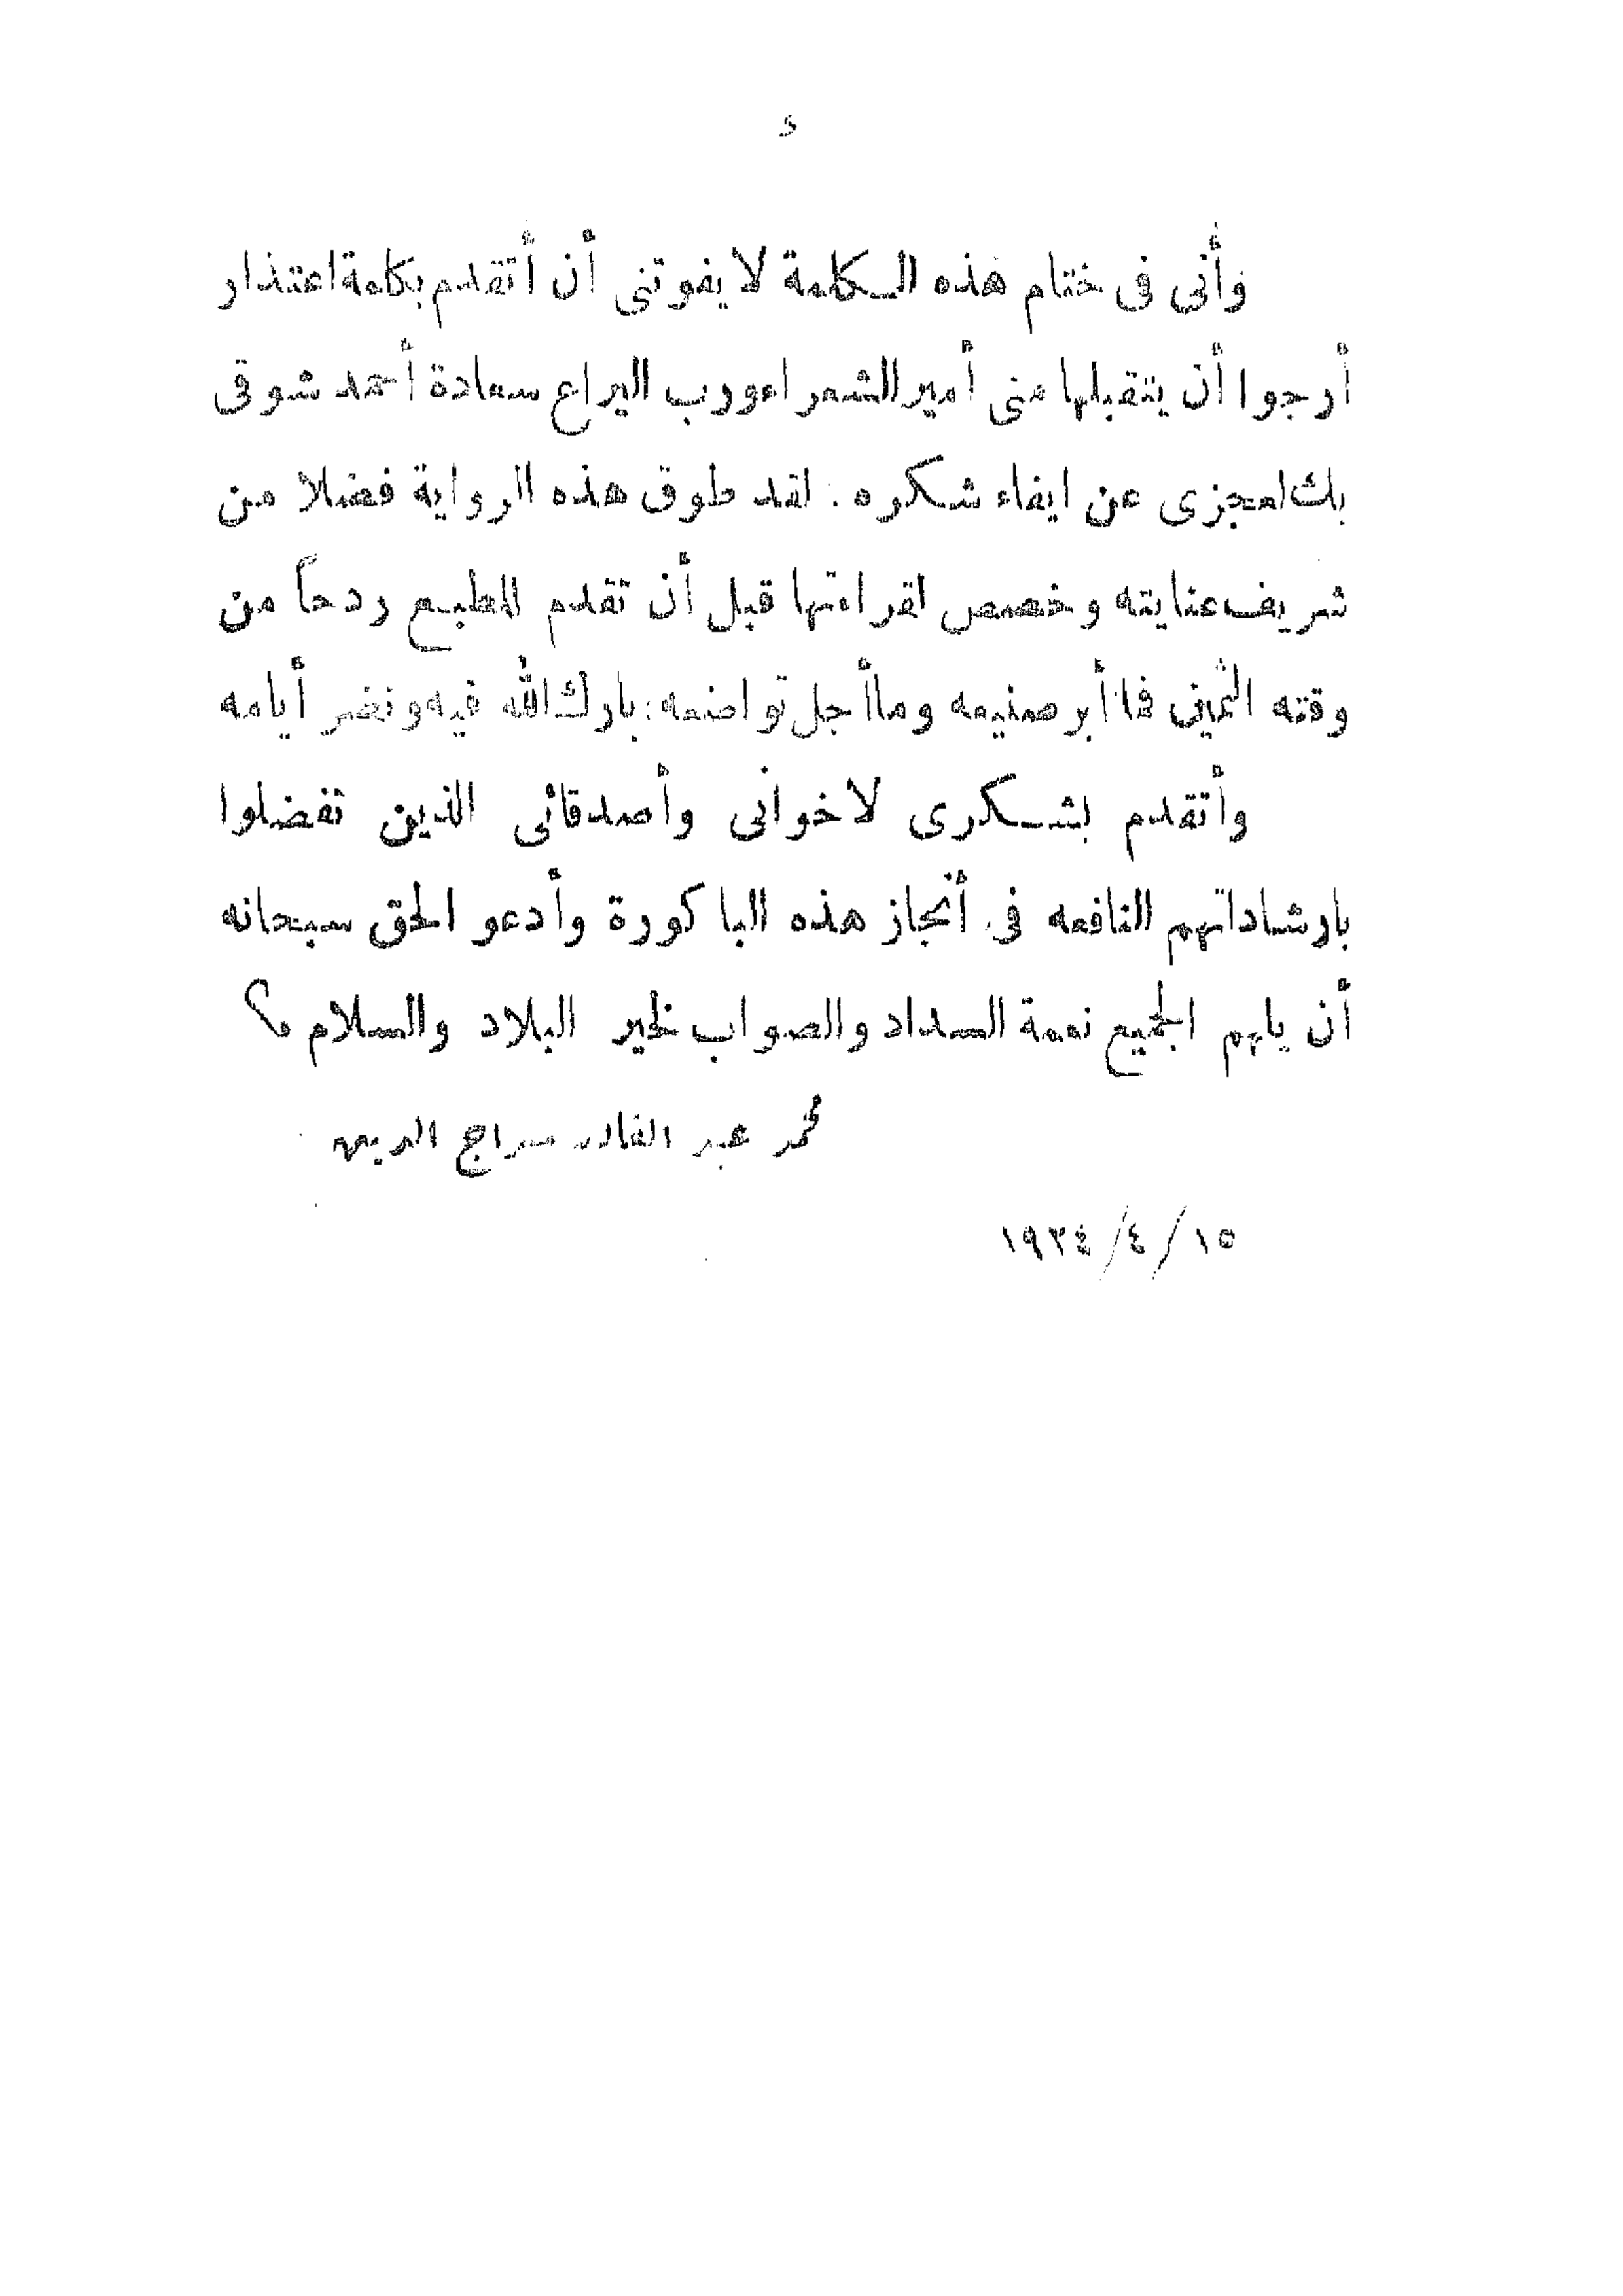 د
وأنى فى ختام هذه الكلمة لا يفوتنى أن أتقدم بكلمة اعتذار
أرجوا أن يتقبلها منى أمير الشعراء ورب اليراع سعادة أحمد شوقى
بك لعجزى عن ايفاء شكره : لقد طوق هذه الرواية فضلا من
شريف عنايته وخصص لقراءتها قبل أن تقدم للطبع ردحاً من
وقته الثمين فما أبر صنيعه وما أجل تواضعه : بارك الله فيه ونضر أيامه
وأتقدم بشكرى لاخوانى وأصدقائى الذين تفضلوا
بارشاداتهم النافعه فى أنجاز هذه الباكورة وأدعو الحق سبحانه
أن يلهم الجميع نعمة السداد والصواب لخير البلاد والسلام ؟
محمد عبد القادر سراج الدين
١٥/٤/١٩٢٤